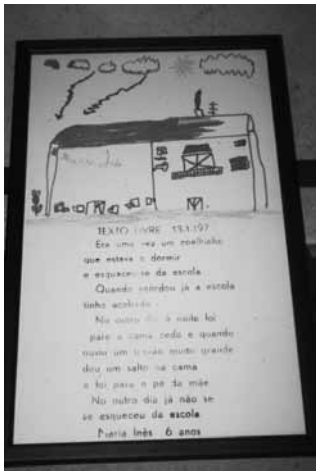 TEXTO LIVRE 13.1.197
Era uma vez um coelhinho
que estava a dormir
e esqueceu-se da escola.
Quando acordou já a escola
tinha acabado.
No outro dia à noite foi
para a cama cedo e quando
ouviu um trovão muito grande
deu um salto na cama
e foi para o pé da mãe
No outro dia já não se
se esqueceu da escola
Maria Inês 6 anos